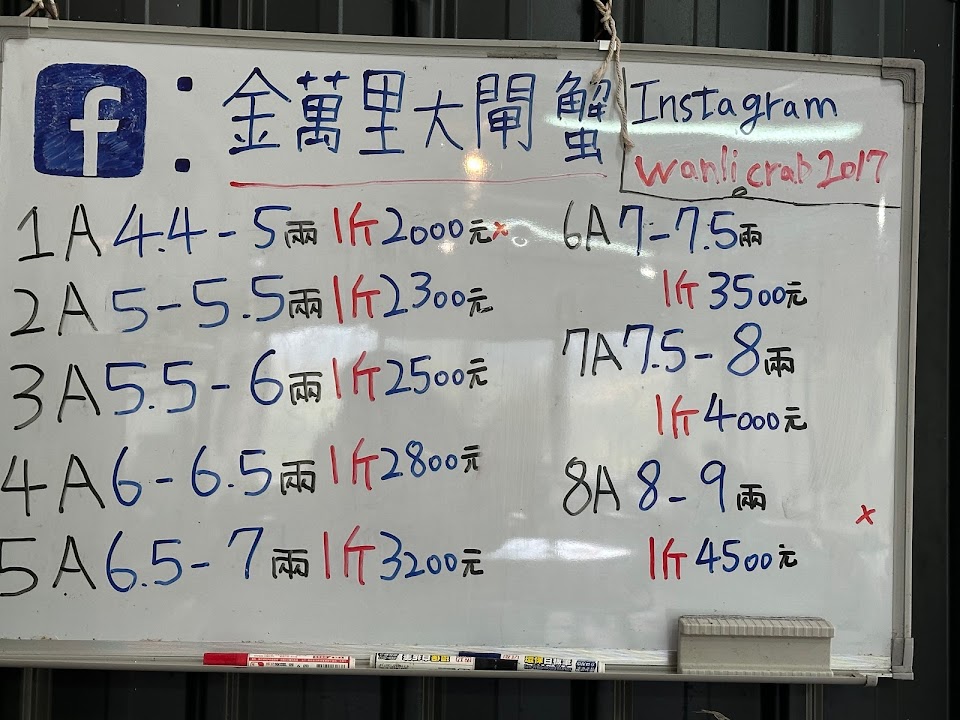 f : 金萬里大閘蟹
Instagram
wanlicrab2017
1A 4.4-5兩 1斤2000元 x
2A 5-5.5兩 1斤2300元
3A 5.5-6兩 1斤2500元
4A 6-6.5兩 1斤2800元
5A 6.5-7兩 1斤3200元
6A 7-7.5兩
1斤3500元
7A 7.5-8兩
1斤4000元
8A 8-9兩 x
1斤4500元